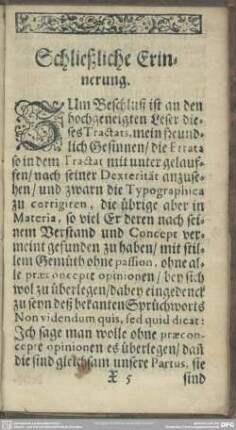 Schließliche Erin-
nerung.
ZUm Beschluß ist an den
hochgeneigten Leser die-
ses Tractats, mein freund-
lich Gesünnen/ die Errata
so in dem Tractat mit unter gelauf-
fen/ nach seiner Dexterität anzuse-
hen/ und zwarn die Typographica
zu corrigiren, die übrige aber in
Materia, so viel Er deren nach sei-
nem Verstand und Concept ver-
meint gefunden zu haben/ mit stil-
lem Gemüth ohne passion, ohne al-
le præconcepte opinionen/ bey sich
wol zu überlegen/ dabey eingedenck
zu seyn deß bekanten Sprüchworts
Non videndum quis, sed quid dicat:
Jch sage man wolle ohne præcon-
cepte opinionen es überlegen/ dañ
die sind gleichsam unsere Partus, sie
X 5 sind